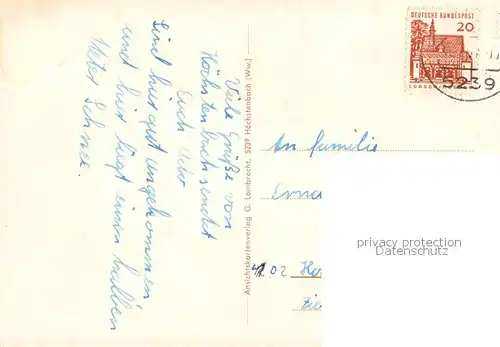 Viele Grüße von
Höchstenbach sendet
Euch Udo
Sind hier gut angekommen
und hier liegt einen halben
Meter Schnee.
Ansichtskartenverlag G. Lambrecht, 5239 Höchstenbach (Ww.)
DEUTSCHE BUNDESPOST
20
LORSCH
5239
An Familie
privacy protection
Datenschutz
02